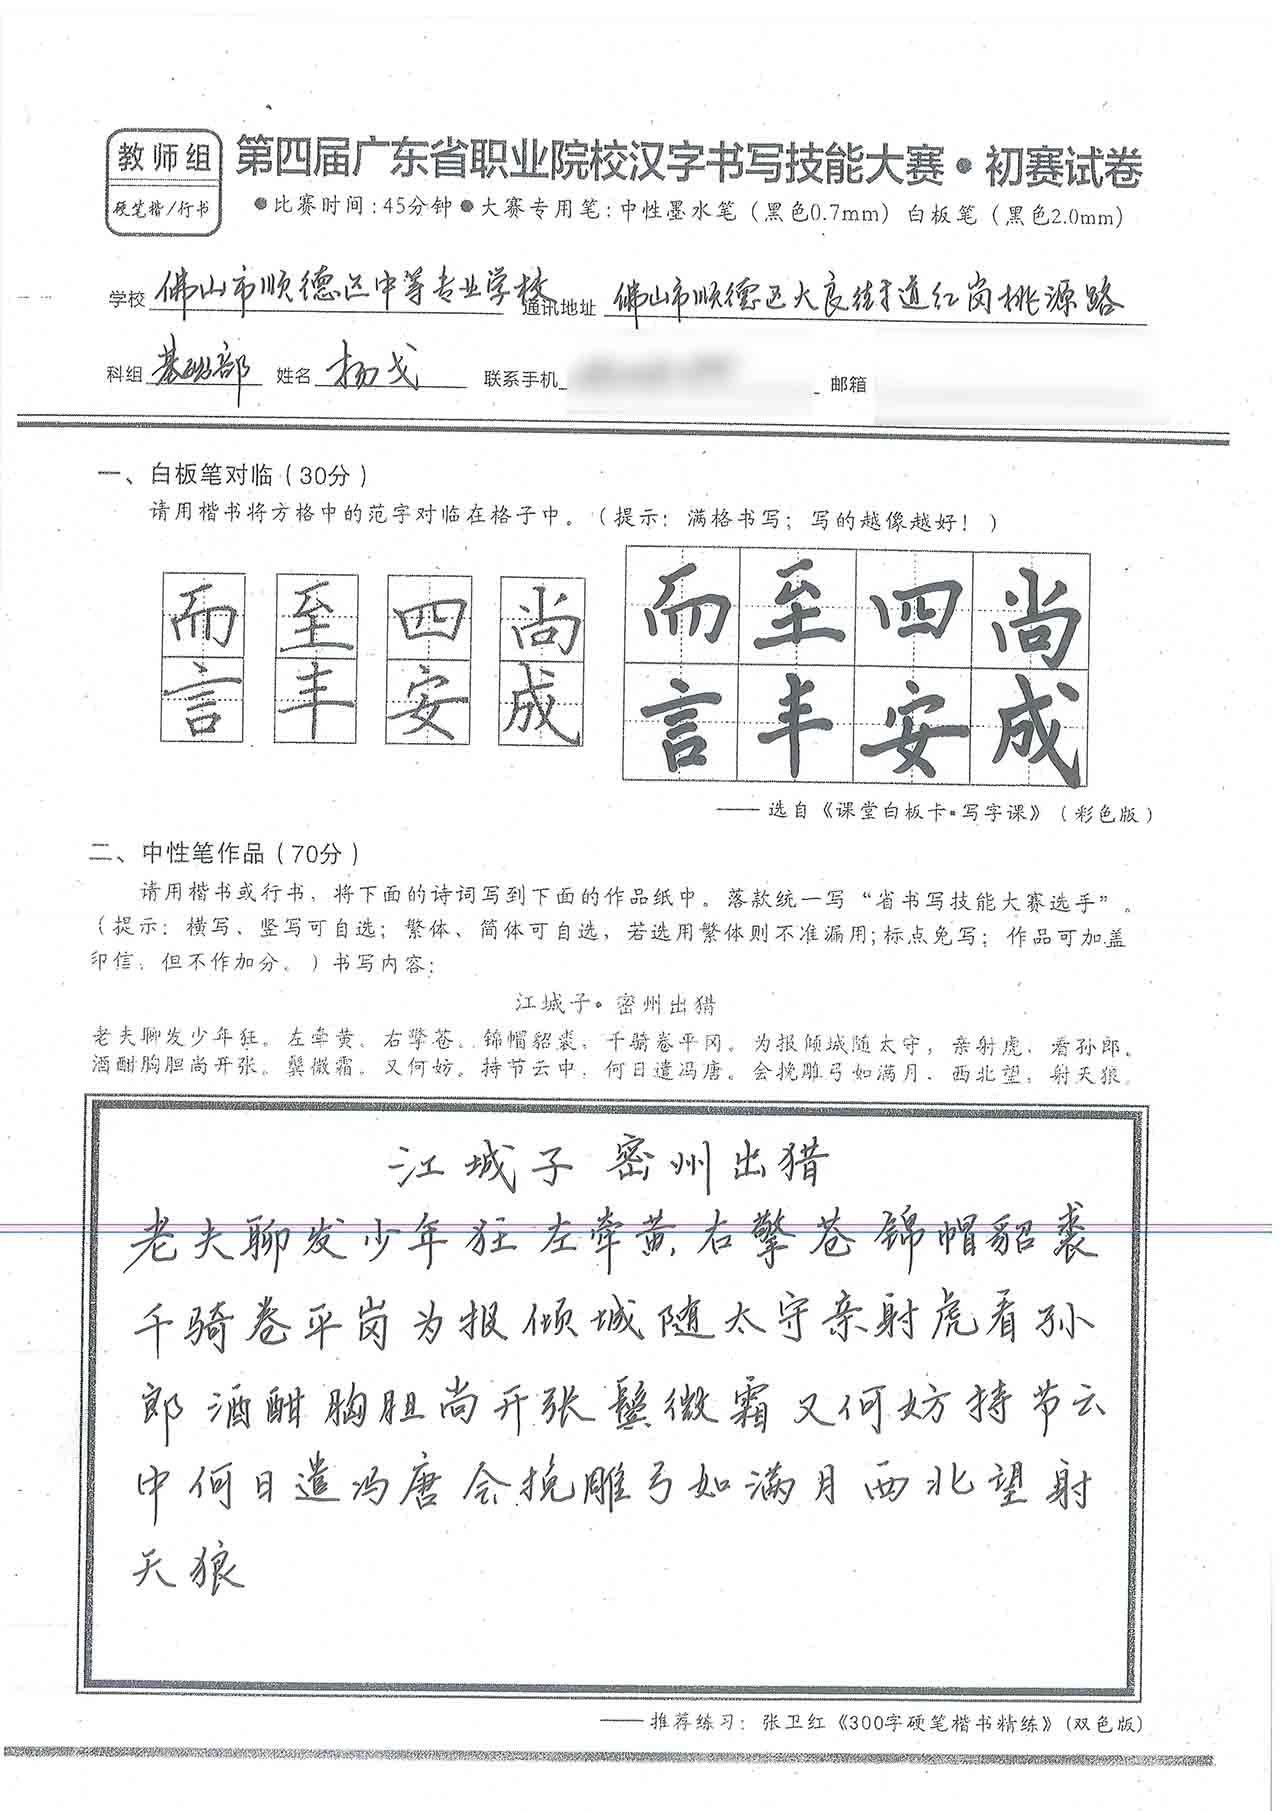 教师组
硬笔楷/行书
第四届广东省职业院校汉字书写技能大赛·初赛试卷
●比赛时间:45分钟●大赛专用笔:中性墨水笔(黑色0.7mm)白板笔(黑色2.0mm)
学校 佛山市顺德区中等专业学校 通讯地址 佛山市顺德区大良街道红岗桃源路
科组 基础部 姓名 杨戈 联系手机 邮箱
一、白板笔对临(30分)
请用楷书将方格中的范字对临在格子中。(提示:满格书写;写的越像越好!)
而 至 四 尚 而 至 四 尚
言 丰 安 成 言 丰 安 成
——选自《课堂白板卡·写字课》(彩色版)
二、中性笔作品(70分)
请用楷书或行书,将下面的诗词写到下面的作品纸中。落款统一写“省书写技能大赛选手”。
(提示:横写、竖写可自选;繁体、简体可自选,若选用繁体则不准漏用;标点免写;作品可加盖
印信,但不作加分。)书写内容:
江城子·密州出猎
老夫聊发少年狂。左牵黄、右擎苍。锦帽貂裘、千骑卷平冈。为报倾城随太守,亲射虎,看孙郎。
酒酣胸胆尚开张。鬓微霜。又何妨。持节云中,何日遣冯唐。会挽雕弓如满月,西北望,射天狼。
江城子 密州出猎
老夫聊发少年狂左牵黄右擎苍锦帽貂裘
千骑卷平岗为报倾城随太守亲射虎看孙
郎酒酣胸胆尚开张鬓微霜又何妨持节云
中何日遣冯唐会挽雕弓如满月西北望射
天狼
——推荐练习:张卫红《300字硬笔楷书精练》(双色版)